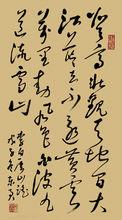 登高壮觀天地間大
江茫茫去不還黄雲
萬里動風色白波九
道流雪山
李白廬山謠